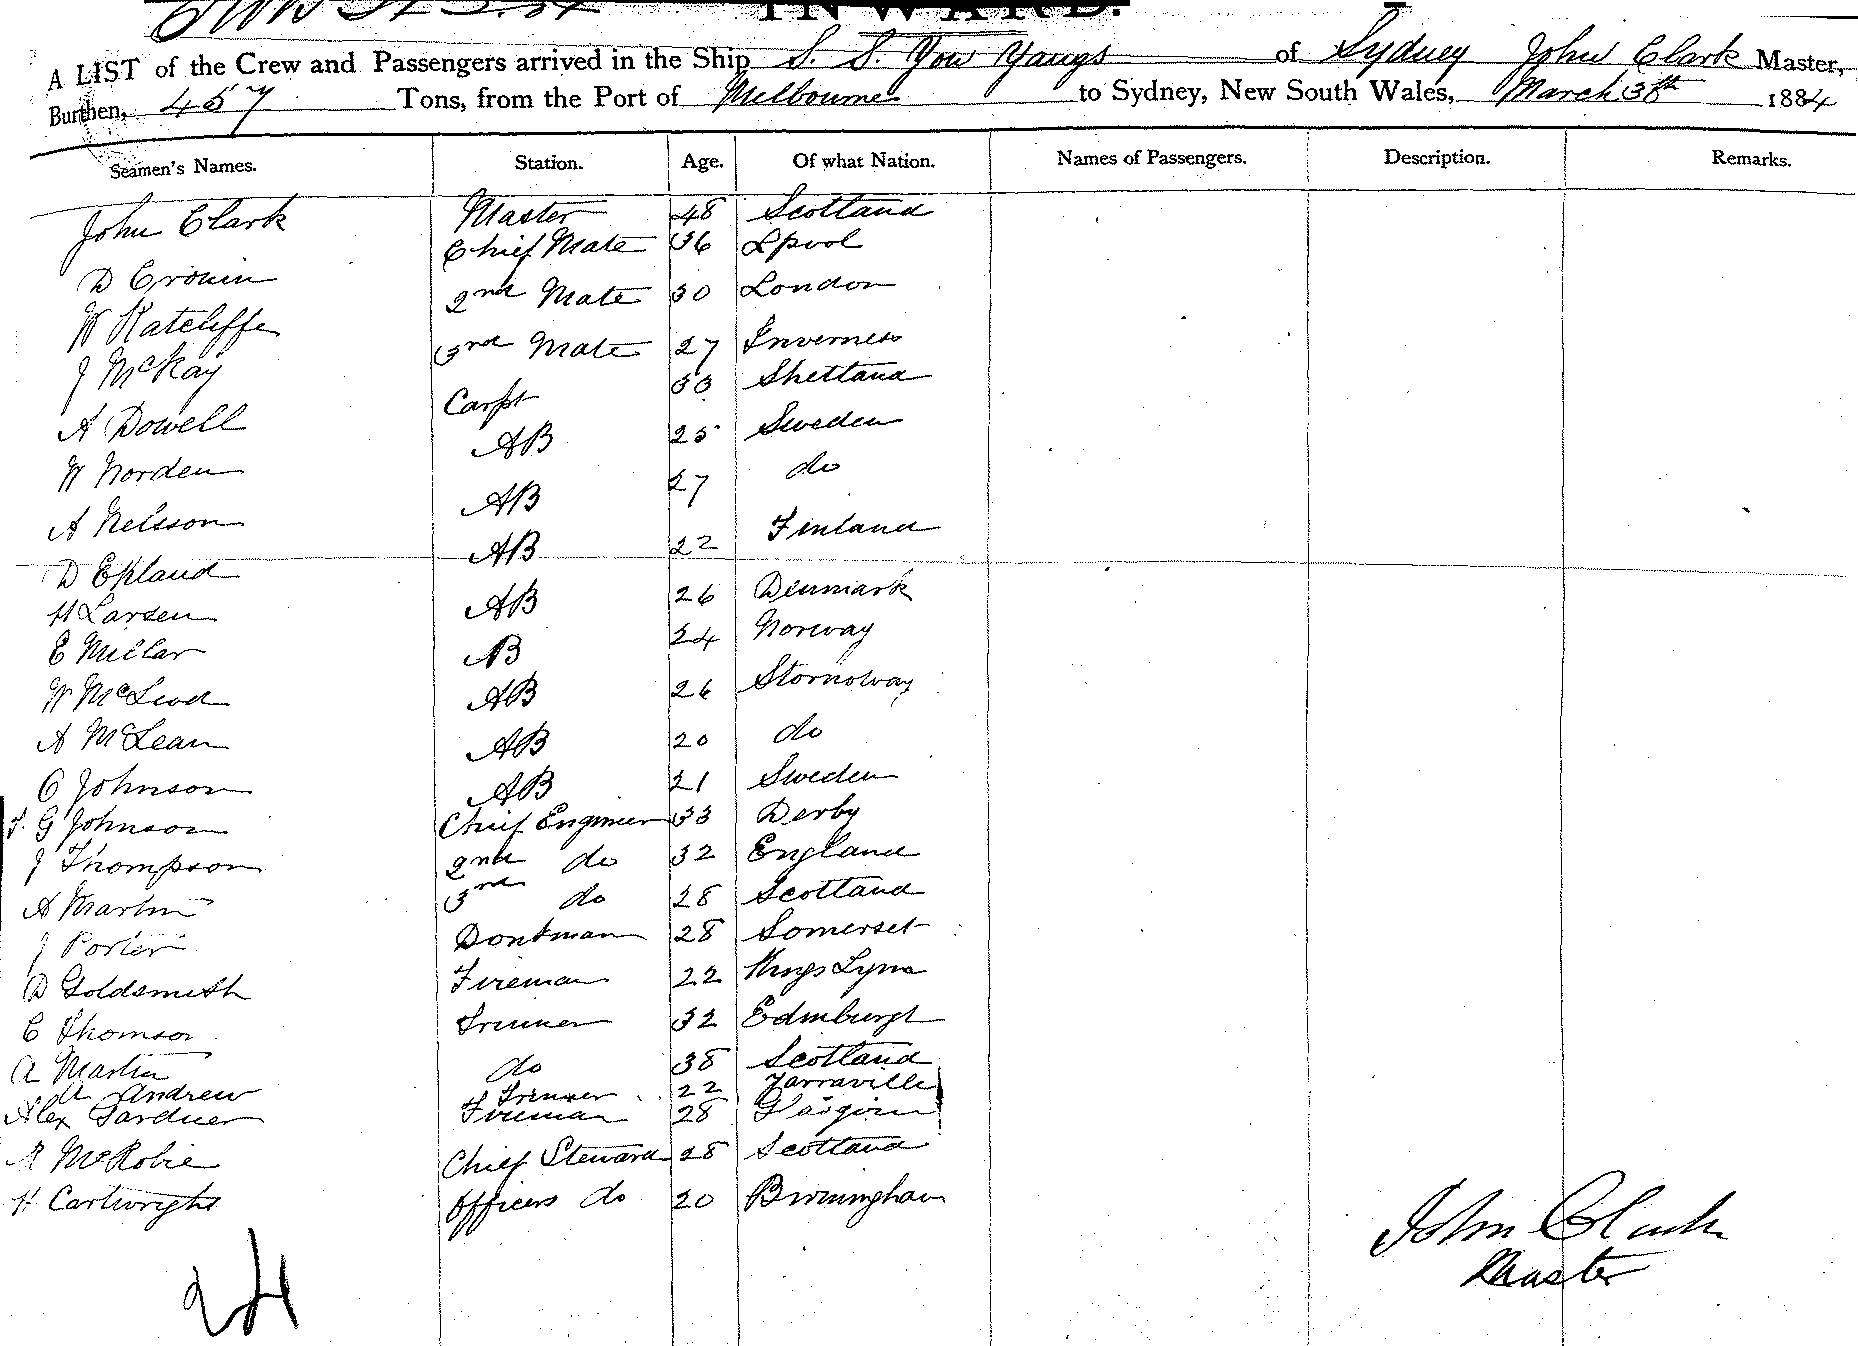 INWARD.
A LIST of the Crew and Passengers arrived in the Ship S. S. You Yangs of Sydney John Clark Master,
Burthen, 457 Tons, from the Port of Melbourne to Sydney, New South Wales, March 1884
Seamen's Names. Station. Age. Of what Nation. Names of Passengers. Description. Remarks.
John Clark Master 48 Scotland
D Cronin Chief Mate 36 Lpool
W Ratcliffe 2nd Mate 30 London
J McKay 3rd Mate 27 Inverness
A Dowell Carpt 33 Shetland
W Norden AB 25 Sweden
A Nelsson AB 27 do
D Ekland AB 22 Finland
H Larsen AB 26 Denmark
E Millar AB 24 Norway
W McLeod AB 26 Stornoway
A McLean AB 20 do
C Johnson AB 21 Sweden
T. G Johnson Chief Engineer 33 Derby
J Thompson 2nd do 32 England
A Martin 3rd do 28 Scotland
J Porter Donkman 28 Somerset
D Goldsmith Fireman 22 Kings Lynn
C Thomson Trimmer 32 Edinburgh
A Martin do 38 Scotland
A Andrew Trimmer 22 Yarraville
Alex Gardner Fireman 28 Glasgow
A McRobie Chief Steward 28 Scotland
H Cartwright Officers do 20 Birmingham
John Clark
Master
24